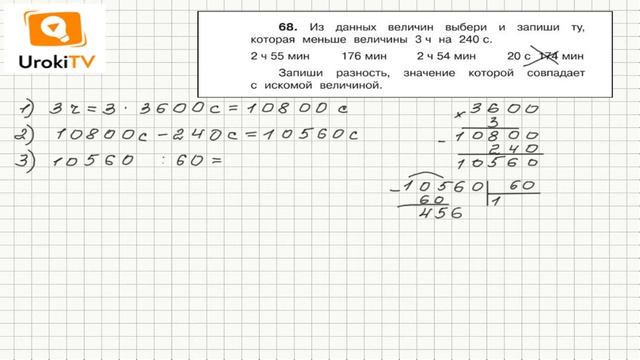 UrokiTV
68. Из данных величин выбери и запиши ту,
которая меньше величины 3 ч на 240 с.
2 ч 55 мин 176 мин 2 ч 54 мин 20 с 174 мин
Запиши разность, значение которой совпадает
с искомой величиной.
1) 3 ч = 3 · 3600 с = 10800 с
2) 10800 с − 240 с = 10560 с
3) 10560 : 60 =
× 3600
3
− 10800
240
10560
− 10560 60
60 1
456